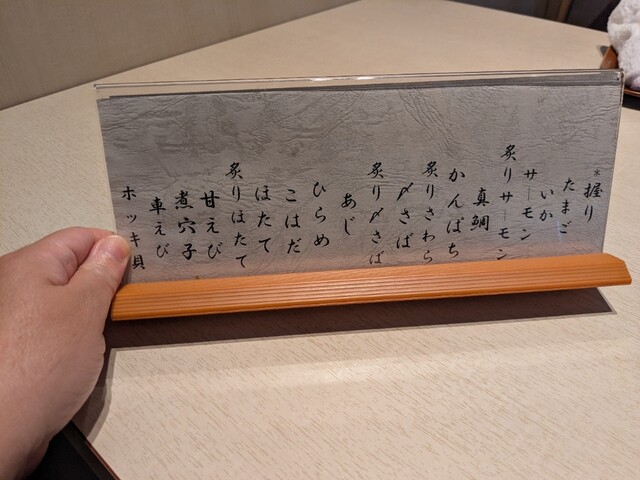 *握り
たまご
いか
サーモン
炙りサーモン
真鯛
かんぱち
炙りさわら
〆さば
炙り〆さば
あじ
ひらめ
こはだ
ほたて
炙りほたて
甘えび
煮穴子
車えび
ホッキ貝